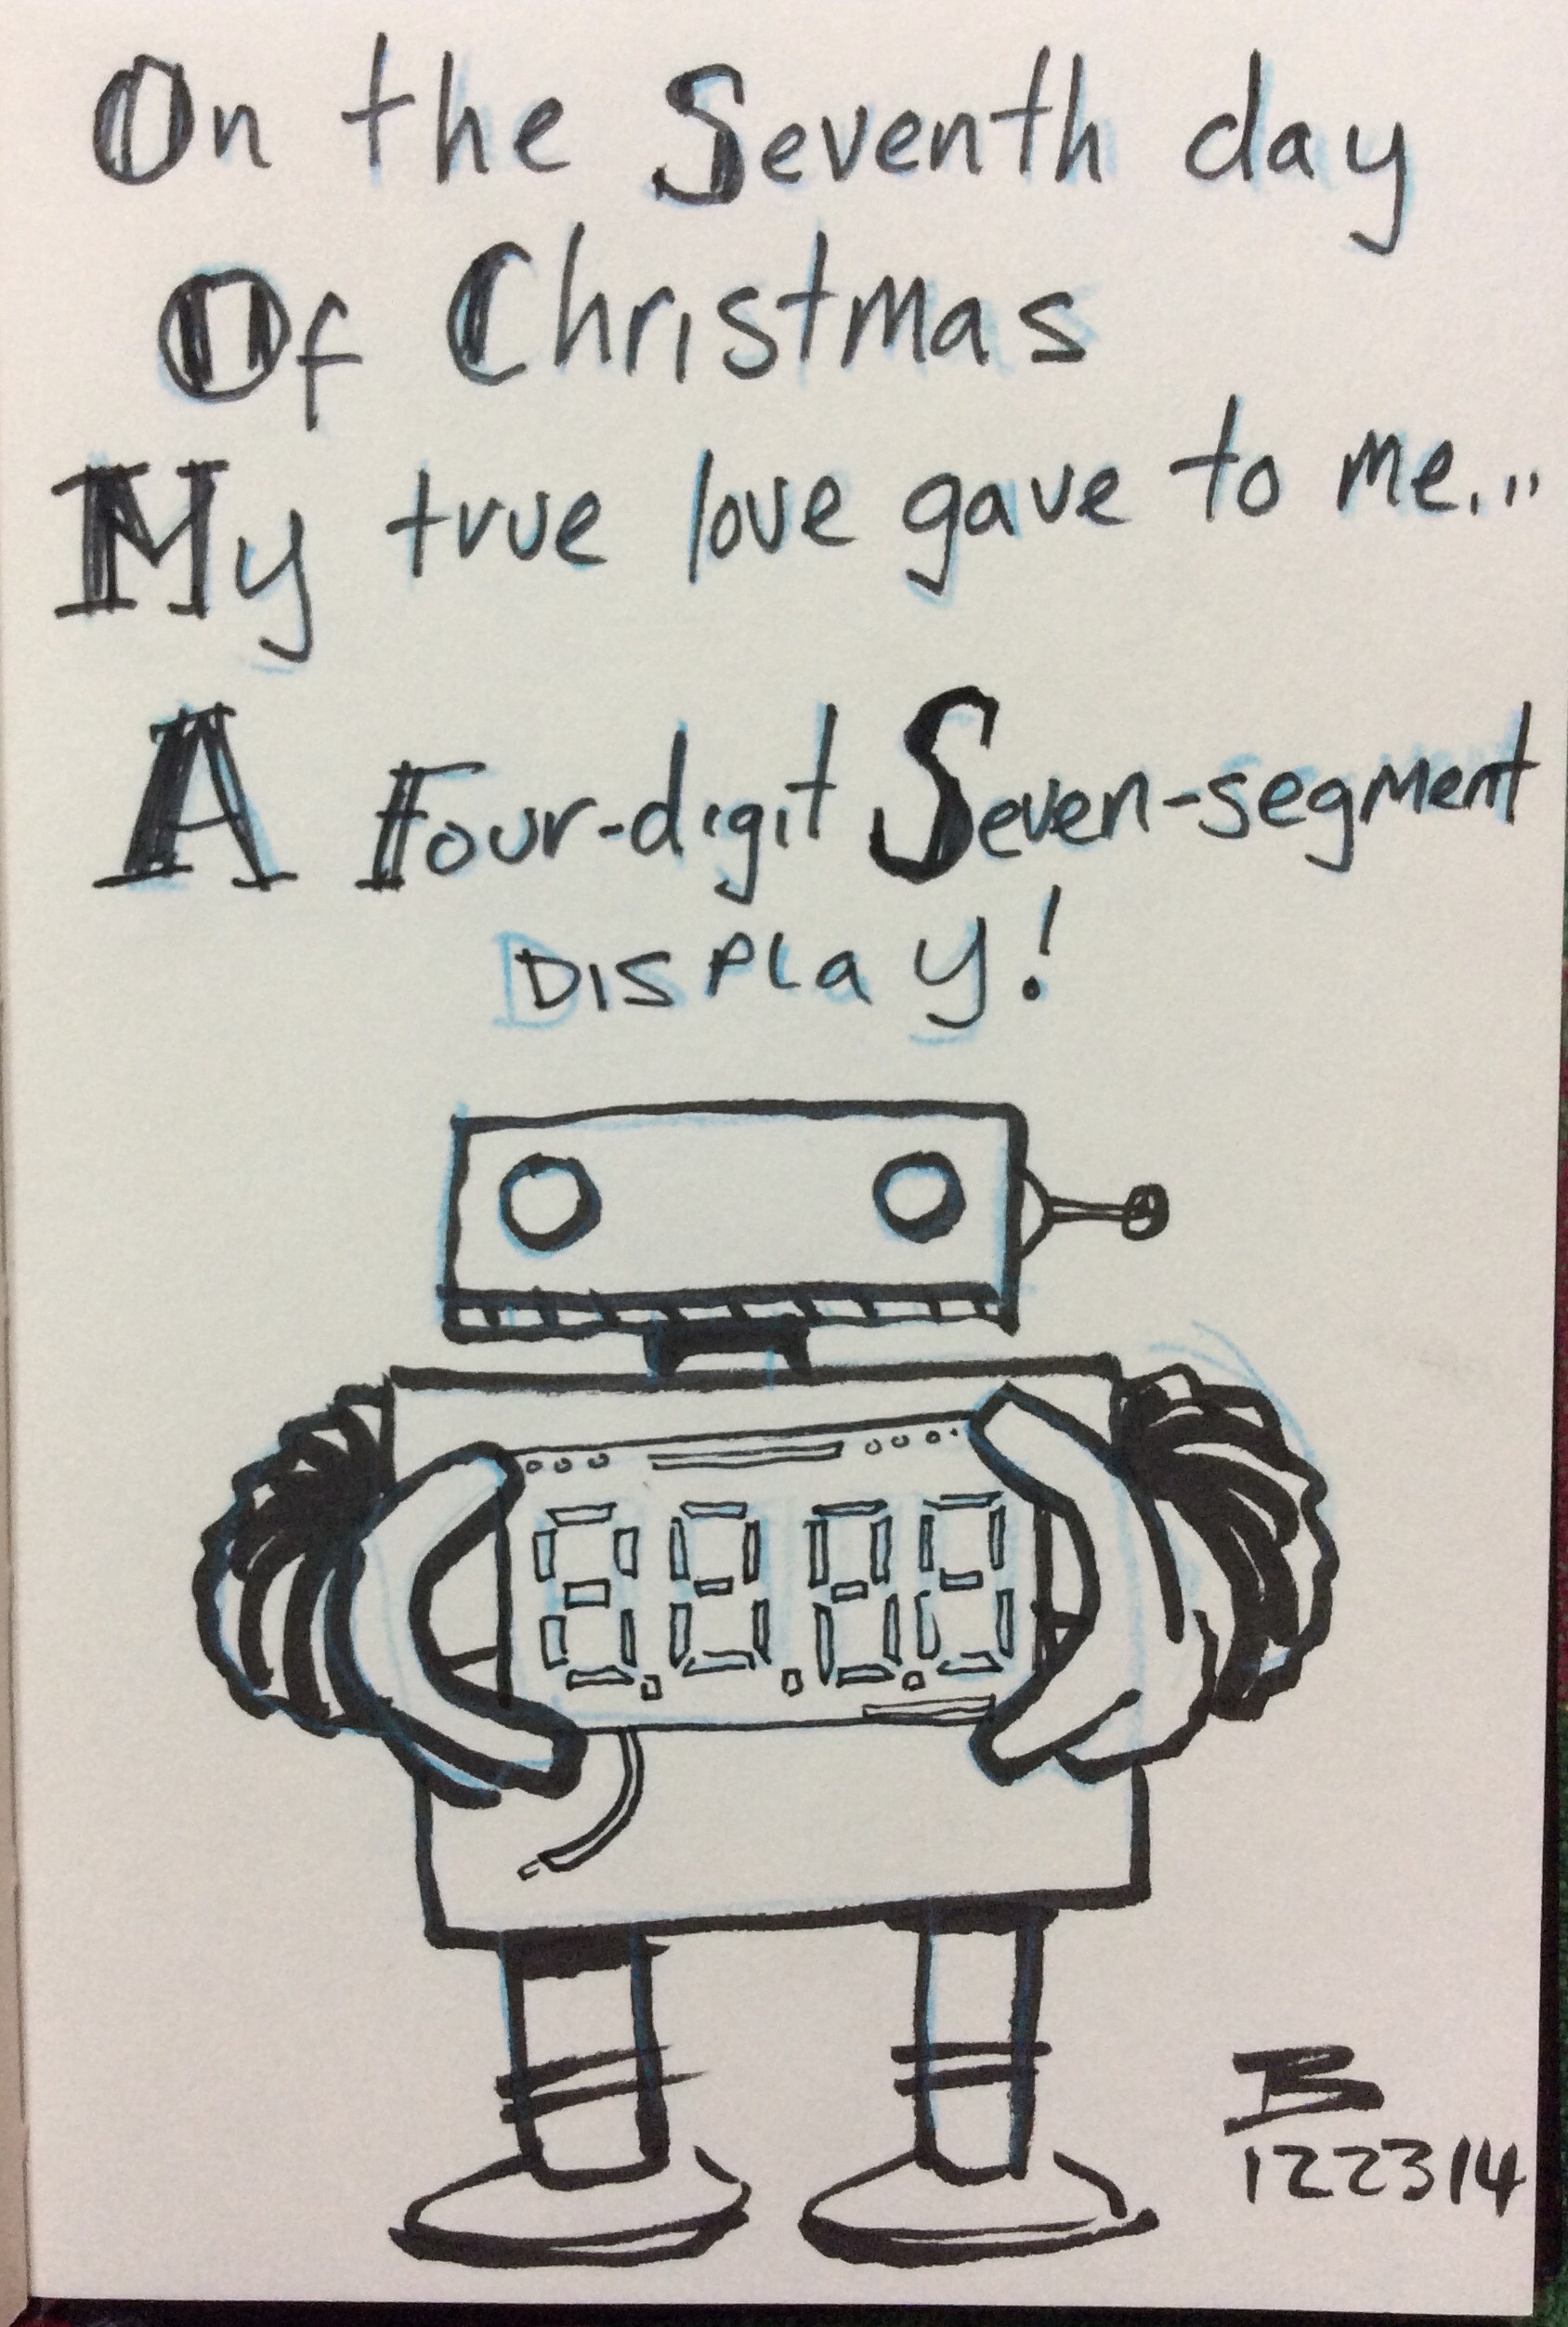 On the Seventh day
Of Christmas
My true love gave to me...
A Four-digit Seven-segment
Display!
8.8.8.8
B
122314